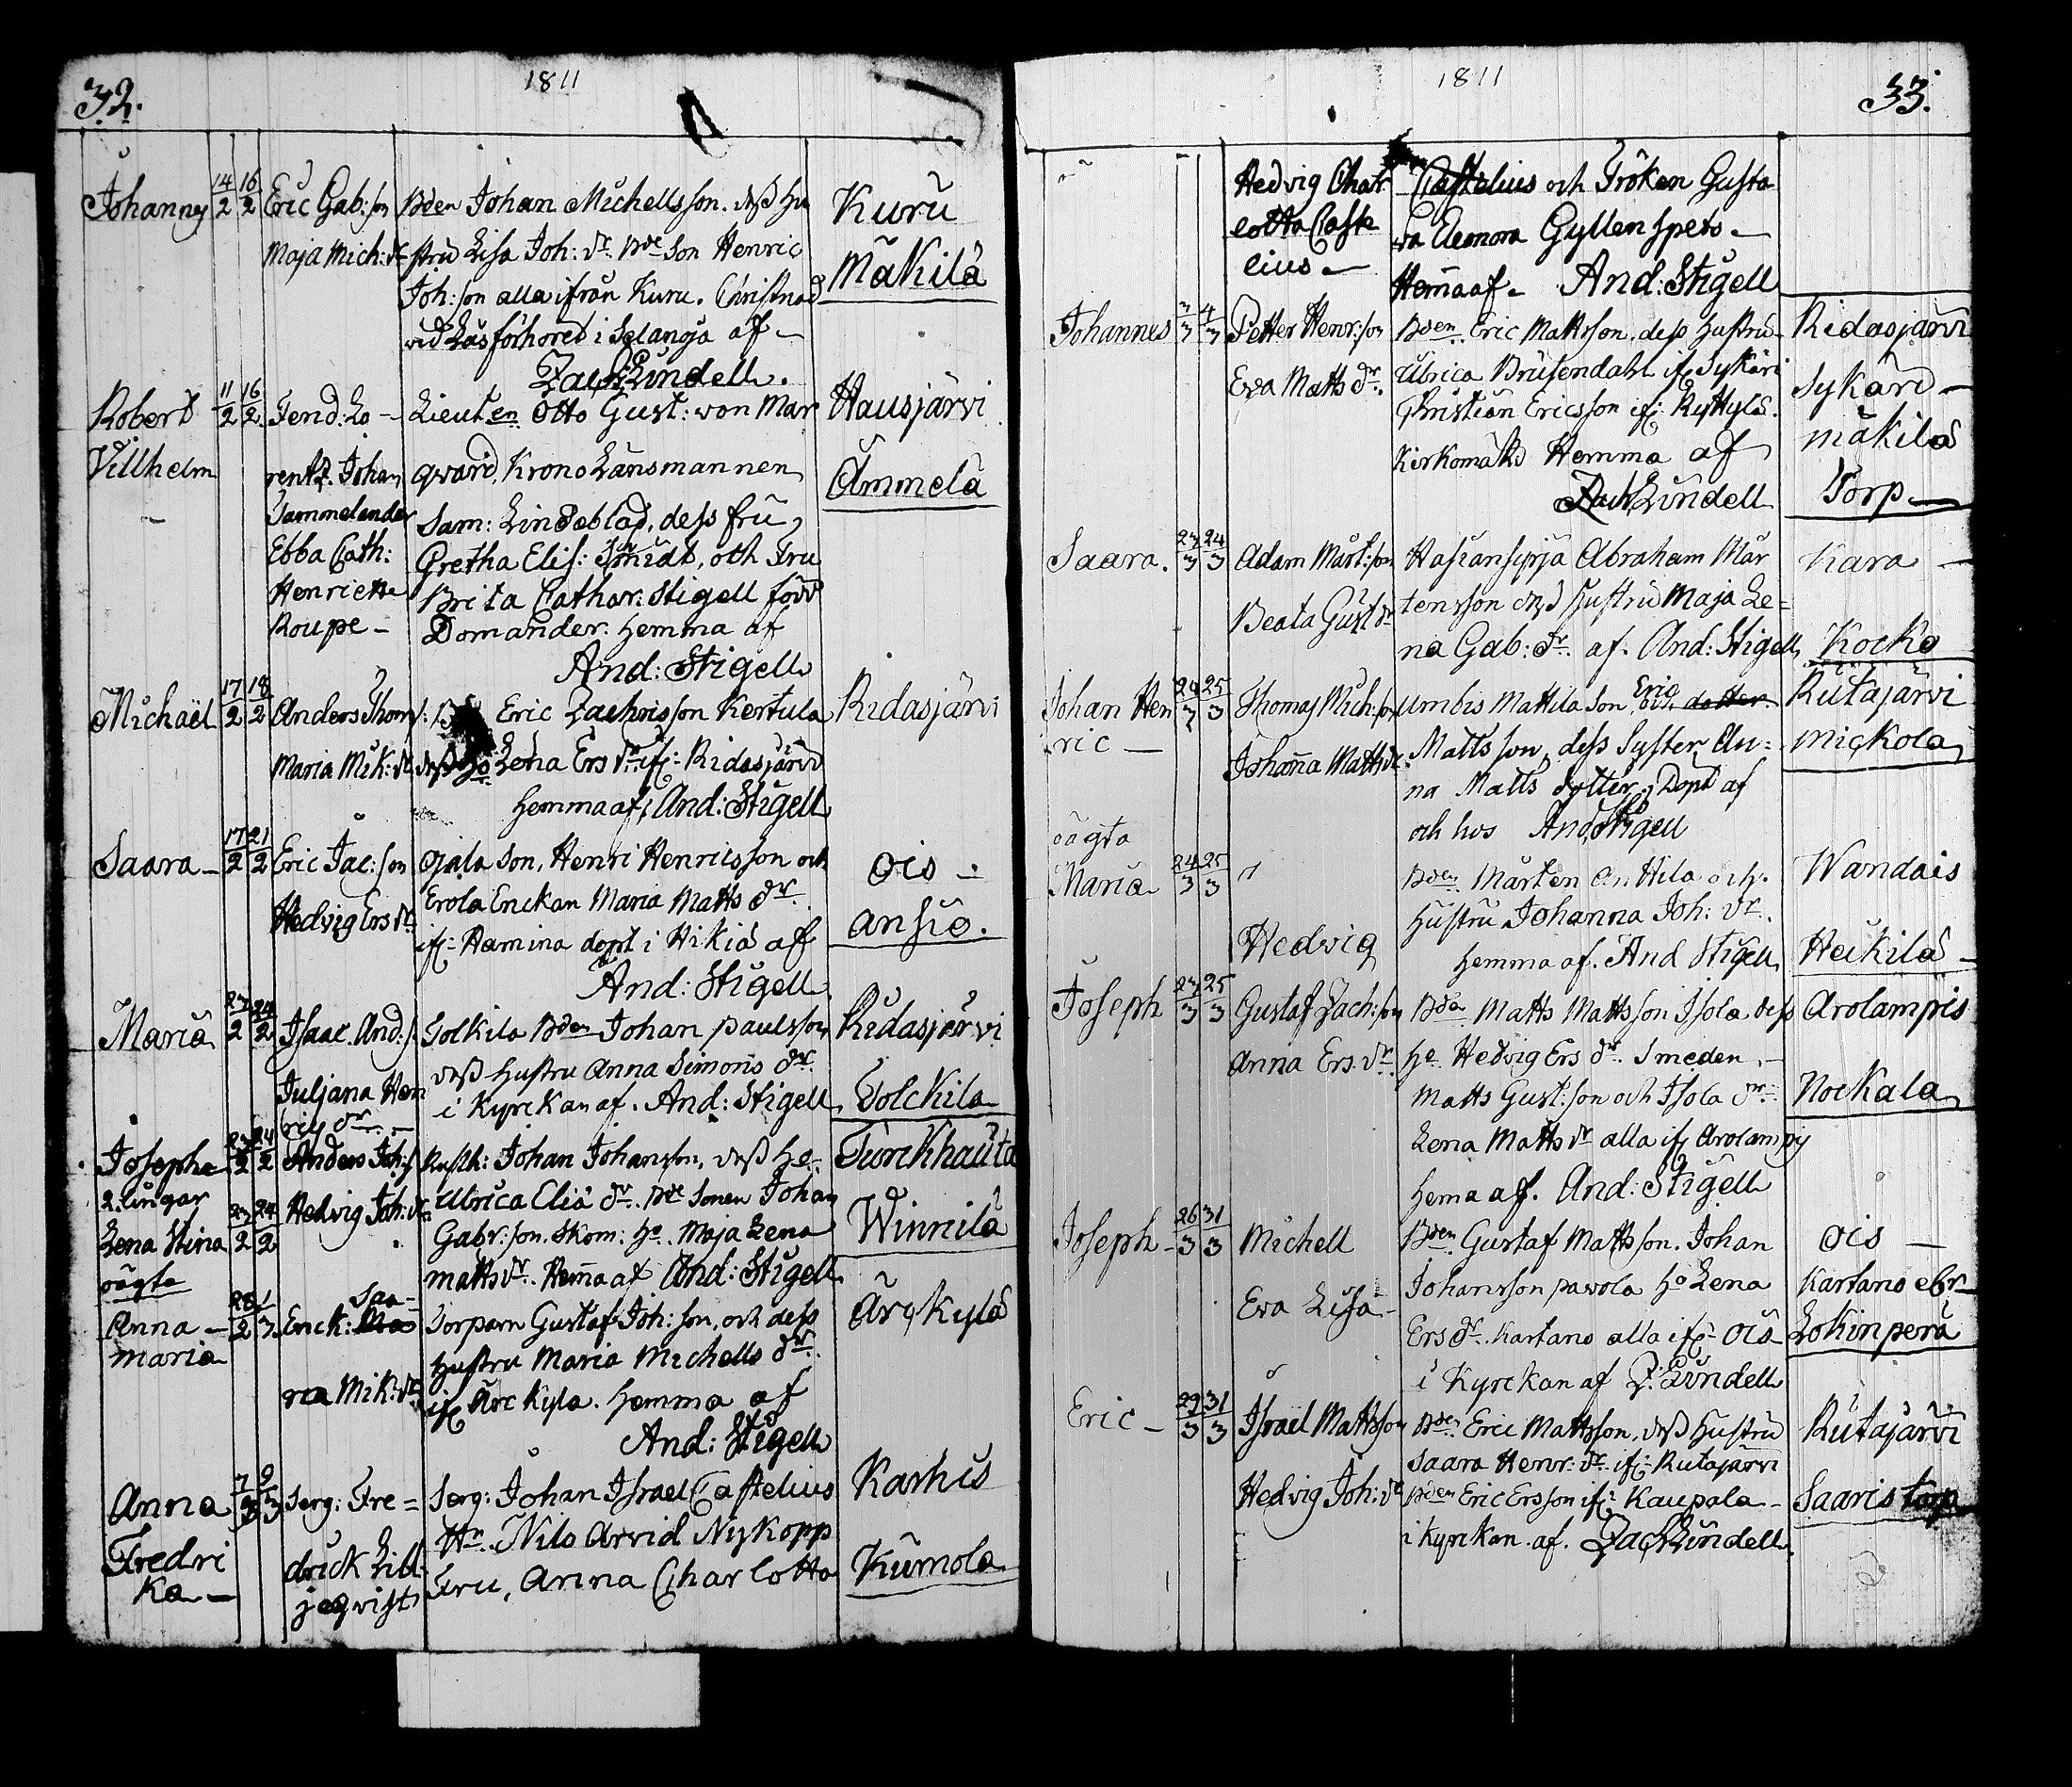 32.
1811
Johannes 14/2 16/2 Eric Gab:son Bden Johan Michellsson. dess hu Kuru
Maja Mich: dr stru Lisa Joh: dr. Bde Son Henric Mäkilä
Joh:son alla ifrån Kuru. Christnad
vid Läsförhöret i Selänoja af
Zach Lindell.
Robert 11/2 16/2 Fend: Lo- Lieuten Otto Gust: von Mar Hausjärvi
Villhelm rentz Johan qvard, Krono Länsmannen Ämmelä
Tammelander Sam: Lindeblad, dess fru
Ebba Cath: Gretha Elis: Smidt, och Fru
Henriette Brita Cathar: Stigell född
Roupe - Domander. hemma af
And: Stigell
Michaël 17/2 18/2 Anders Thom s: Eric Zachrisson Kertula Ridasjärvi
Maria Mik: dr dess ho Lena Ers dr ifr: Ridasjärvi
hemma af, And: Stigell
Saara - 17/2 21/2 Eric Jac:son Ojala Son, Henri Henricsson och Ois -
Hedvig Ers dr Erola Enckan Maria Matts dr. ansio.
ifr: Hamina döpt i Hikiä af
And: Stigell
Maria 23/2 24/2 Isaac And: s. Tolkila Bden Johan Paulsson Ridasjärvi
Juljana Hen dess hustru Anna Simons dr.
rics dr. i Kyrckan af. And: Stigell Tolckila
Josepha 23/2 24/2 Anders Joh: s Rusth: Johan Johansson, dess ho. Turckhauta
2. lingar Hedvig Joh: dr Ulrica Elia dr. Bde Sonen Johan
Lena Stina 23/2 24/2 Gabr:son. Skom: ho. Maja Lena Winnilä
oägta matts dr. Hemma af And: Stigell
Anna - 28/2 1/3 Enck: Saa- Torparn Gustaf Joh:son, och dess Ärckylä
maria ra Mik: dr hustru Maria Michells dr.
ifr Ärckyla. hemma af
And: Stigell
Anna 7/3 9/3 Serg: Fre= Serg: Johan Israel Castelius Karhis
Fredri drick Lill Hr. Nils Arvid Nykopp
ka - jeqvist Fru, Anna Charlotta Kumola
1811
33.
Hedvig Char Castelius och Fröken Gusta
lotta Caste va Eleonora Gyllenspets -
lius - Hemma af - And: Stigell
Johannes 3/3 4/3 Petter Henr:son Bden. Eric Mattsson, dess hustru Ridasjärvi
Eva Matts dr. Ulrica Brusendahl ifr Sykäri Sykäri -
Christian Ericsson ifr: Ryttylä. mäkilä
Kirkomäki Hemma af Torp -
Zach Lindell
Saara. 23/3 24/3 Adam Mårt:son Hasianssyrjä Abraham Mår Kara -
Beata Gust dr tensson dess hustru Maja Le=
na Gab: dr. af. And: Stigell Kocko
Johan Hen 24/3 25/3 Thomas Mich:son Umbis Mattila Son, Eric dotter Rutajärvi
ric - Johanna Matts dr Mattsson, dess Syster An= mickola
na Matts dotter; Döpt af
och hos And Stigell
oägta
Maria 24/3 25/3 Bden. Mårten Anttila och. Wandais
Hedwig hustru Johanna Joh: dr.
hemma af. And Stigell Heikilä
Joseph 23/3 25/3 Gustaf Zach:son Bden Matts Mattsson Isola dess Arolampis
Anna Ers. dr. ho Hedvig Ers dr. Smeden -
Matts Gust:son och Isola dr. Nockala
Lena Matts dr alla ifr Arolampy
hema af. And: Stigell
Joseph - 26/3 31/3 Michell Bden Gustaf Mattsson. Johan Ois -
Eva Lisa - Johansson pavola ho Lena Kartano ebr
Ers dr. Kartano alla ifr: Ois Lokinperä
i Kyrckan af Z: Lindell
Eric - 29/3 31/3 Israël Mattsson Bden Eric Mattsson, dess hustru Rutajärvi
Saara Henr: dr. ifr: Rutajärvi
Hedvig Joh: dr Bden Eric Ersson ifr: Kaupala - Saaris torp
i kyrckan. af. Zach Lindell.